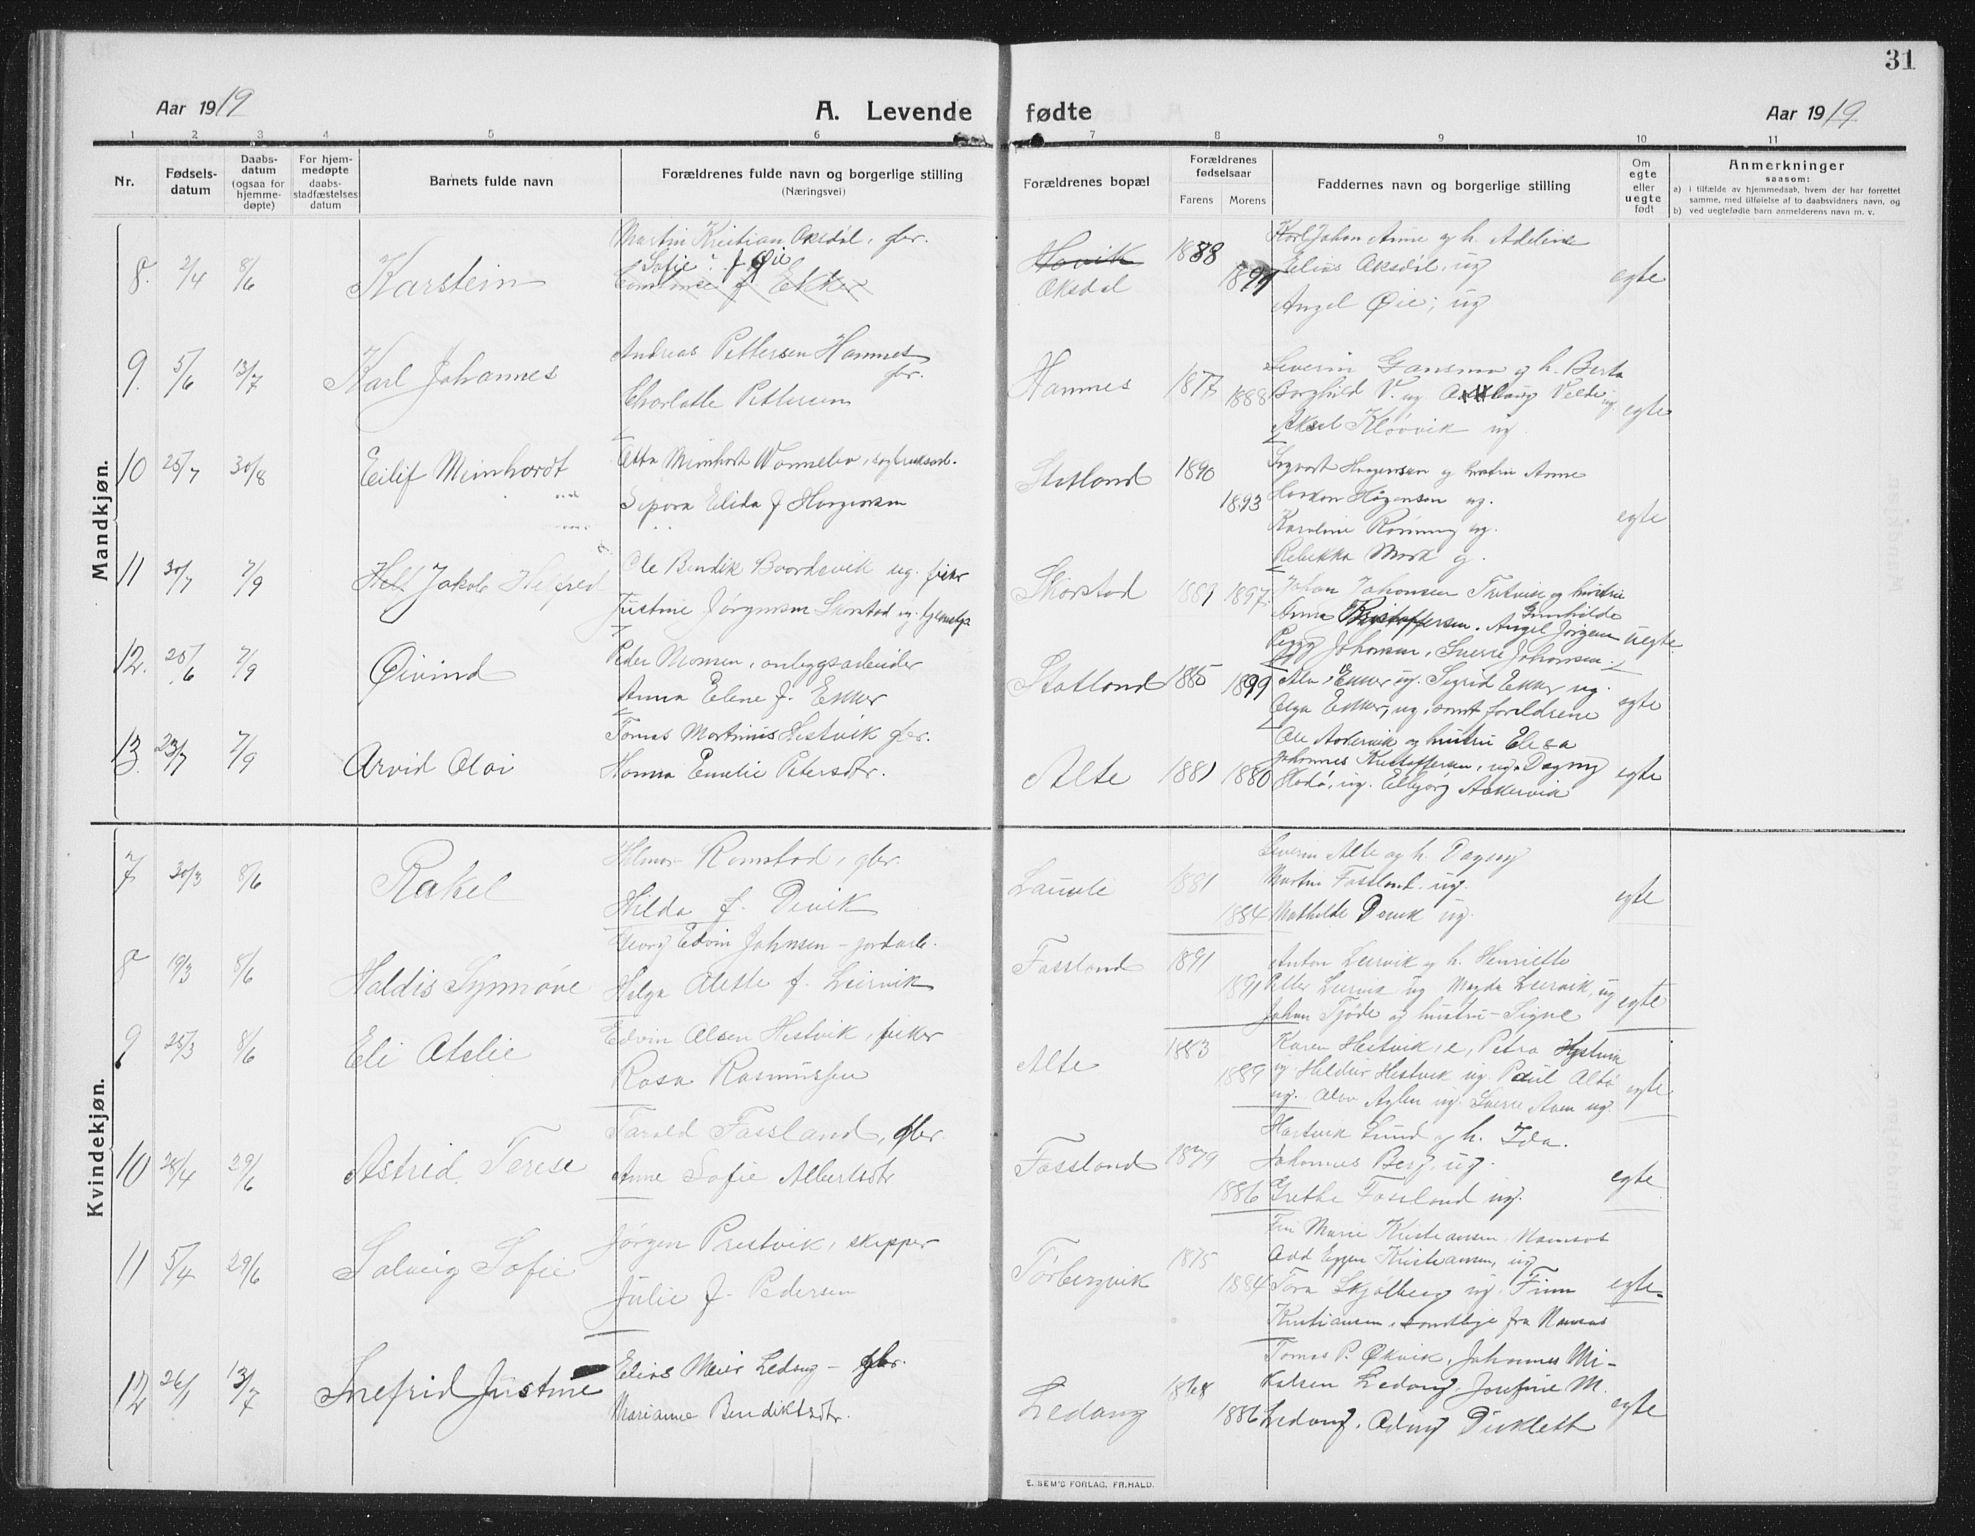 31
Aar 1919
A. Levende
fødte
Aar 1919
1 2 3 4 5 6 7 8 9 10 11
Nr.
Fødsels-
datum
Daabs-
datum
(ogsaa for
hjemme-
døpte)
For hjem-
medøpte
daabs-
stadfæstelses
datum
Barnets fulde navn
Forældrenes fulde navn og borgerlige stilling
(Næringsvei)
Forældrenes bopæl
Forældrenes
fødselsaar
Farens Morens
Faddernes navn og borgerlige stilling
Om
egte
eller
uegte
født
Anmerkninger
saasom:
a) i tilfælde av hjemmedaab, hvem der har forrettet
samme, med tilføielse af to daabsvidners navn, og
b) ved uegtefødte barn anmelderens navn m. v.
Mandkjøn.
8. 2/4 8/6 Karstein
Martin Kristian Aksdal, gbr.
Sofie f. Øie
f. Ekker
Hovik
Oksdal
1888
Karl Johan Anne og h. Adeline
Elias Oksdal, ug
Angel Øie, ug
egte
9. 5/6 13/7 Karl Johannes
Andreas Pettersen Hamnes
gbr.
Charlotte Pettersen
Hamnes
1877 1888
Severin Gansmo og h. Berta
Borghild V. ug. Velde ug.
Aksel Kløvvik ug
egte
10 25/7 30/8 Eilif Meinhardt
Otto Meinhart
Sepora Elida f Horgensen
Statland
1890 1893
Sigvart og hustru Anne
Haakon ug.
Karoline Rønning ug.
Rebekka Mork g.
egte
11 30/7 7/9 Jakob Helfred
Ole Bendik ug. fisker
Justine Jørgensen ug.
Skorstad
1889 1897
Johan Johansen og hustru
Anna Kristoffersen. Angel Jørgensen
Gunhilde
Peggy Johansen, Sverre Johansen.
uegte
12. 25/6 7/9 Øivind
Peder Monsen, anlegsarbeider
Anna Elene f. Ekker
Statland
1885 1899
Ekker ug. Sigrid Ekker ug.
Olga Ekker, ug, samt forældrene
egte
13. 23/7 7/9 Arvid Olai
Tomas Martinus Hestvik gbr.
Hanna Emelie Petersdtr.
Alte
1881 1880
Ole Aakervik og hustru Elesa
Johannes Kristoffersen, ug. Dagny
Hodø, ug. Eilbjørg Aakervik
egte
Kvindekjøn.
7 30/3 8/6 Rakel
Hilmar Ramstad, gbr.
Hilda f. Devik
Lauvli
1881 1884
Severin Alte og h. Dagny
Martin Fossland. ug.
Mathilde Devik ug.
egte
8 19/3 8/6 Haldis Synnøve
Georg Edvin Johnsen - jordarb.
Helga Alette f. Leirvik
Fossland
1891 1891
Anton Leirvik og h. Henriette
Petter Leirvik ug Magda Leirvik, ug
Johan Tjøde og hustru - Signe
egte
9 25/3 8/6 Eli Atelie
Edvin Olsen Hestvik, fisker
Rosa Rasmussen
Alte
1883 1889
Karen Hestvik, e, Petra Hestvik
ug Heldur Hestvik ug. Paul Altø
ug. Olav Aglen ug. Sverre Aven ug.
egte
10 28/4 29/6 Astrid Terese
Harald Fossland, gbr.
Anne Sofie Albertsdtr
Fossland
1879 1886
Hartvik Lund og h. Ida.
Johannes Berg, ug.
Grethe Fossland ug.
egte
11 5/4 29/6 Solveig Sofie
Jørgen Prestvik, skipper
Julie f. Pedersen
Tørbergvik
1875 1884
Fru Marie Kristiansen, Namsos
Odd Eggen Kristiansen, ug
Tora Skjølberg ug. Finn
Kristiansen, samtlige fra Namsos
egte
12 26/1 13/7 Snefrid Justine
Elias Meier Ledang - gbr.
Marianne Bendiktsdtr.
Ledang
1868 1886
Tomas P. Økvik, Johannes Mi-
kalsen Ledang, Josefine M.
Ledang, Odny Dukleth
egte
E. SEM'S FORLAG, FR.HALD.